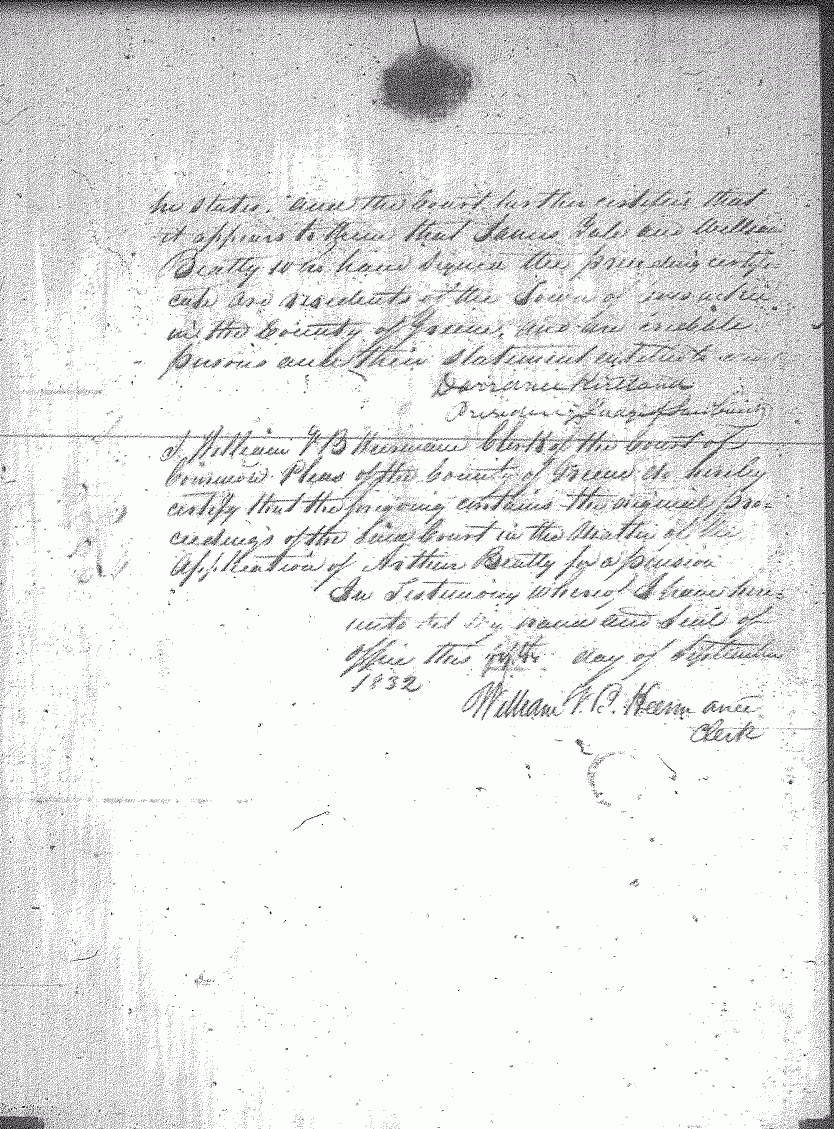 he states. and the Court further certifies that
it appears to them that James Gale and William
Beatty who have signed the preceding certifi-
cate are residents of the Town of
in the County of Greene, and are credible
persons and their statement entitled to
Dorrance Kirtland
Presiding Judge of Said County
I William V B Heermance Clerk of the Court of
Common Pleas of the County of Greene do hereby
certify that the foregoing contains the original pro-
ceedings of the said Court in the Matter of the
Application of Arthur Beatty for a pension
In Testimony whereof I have here-
unto set my hand and Seal of
Office this fifth day of September
1832
William V. B. Heermance
Clerk